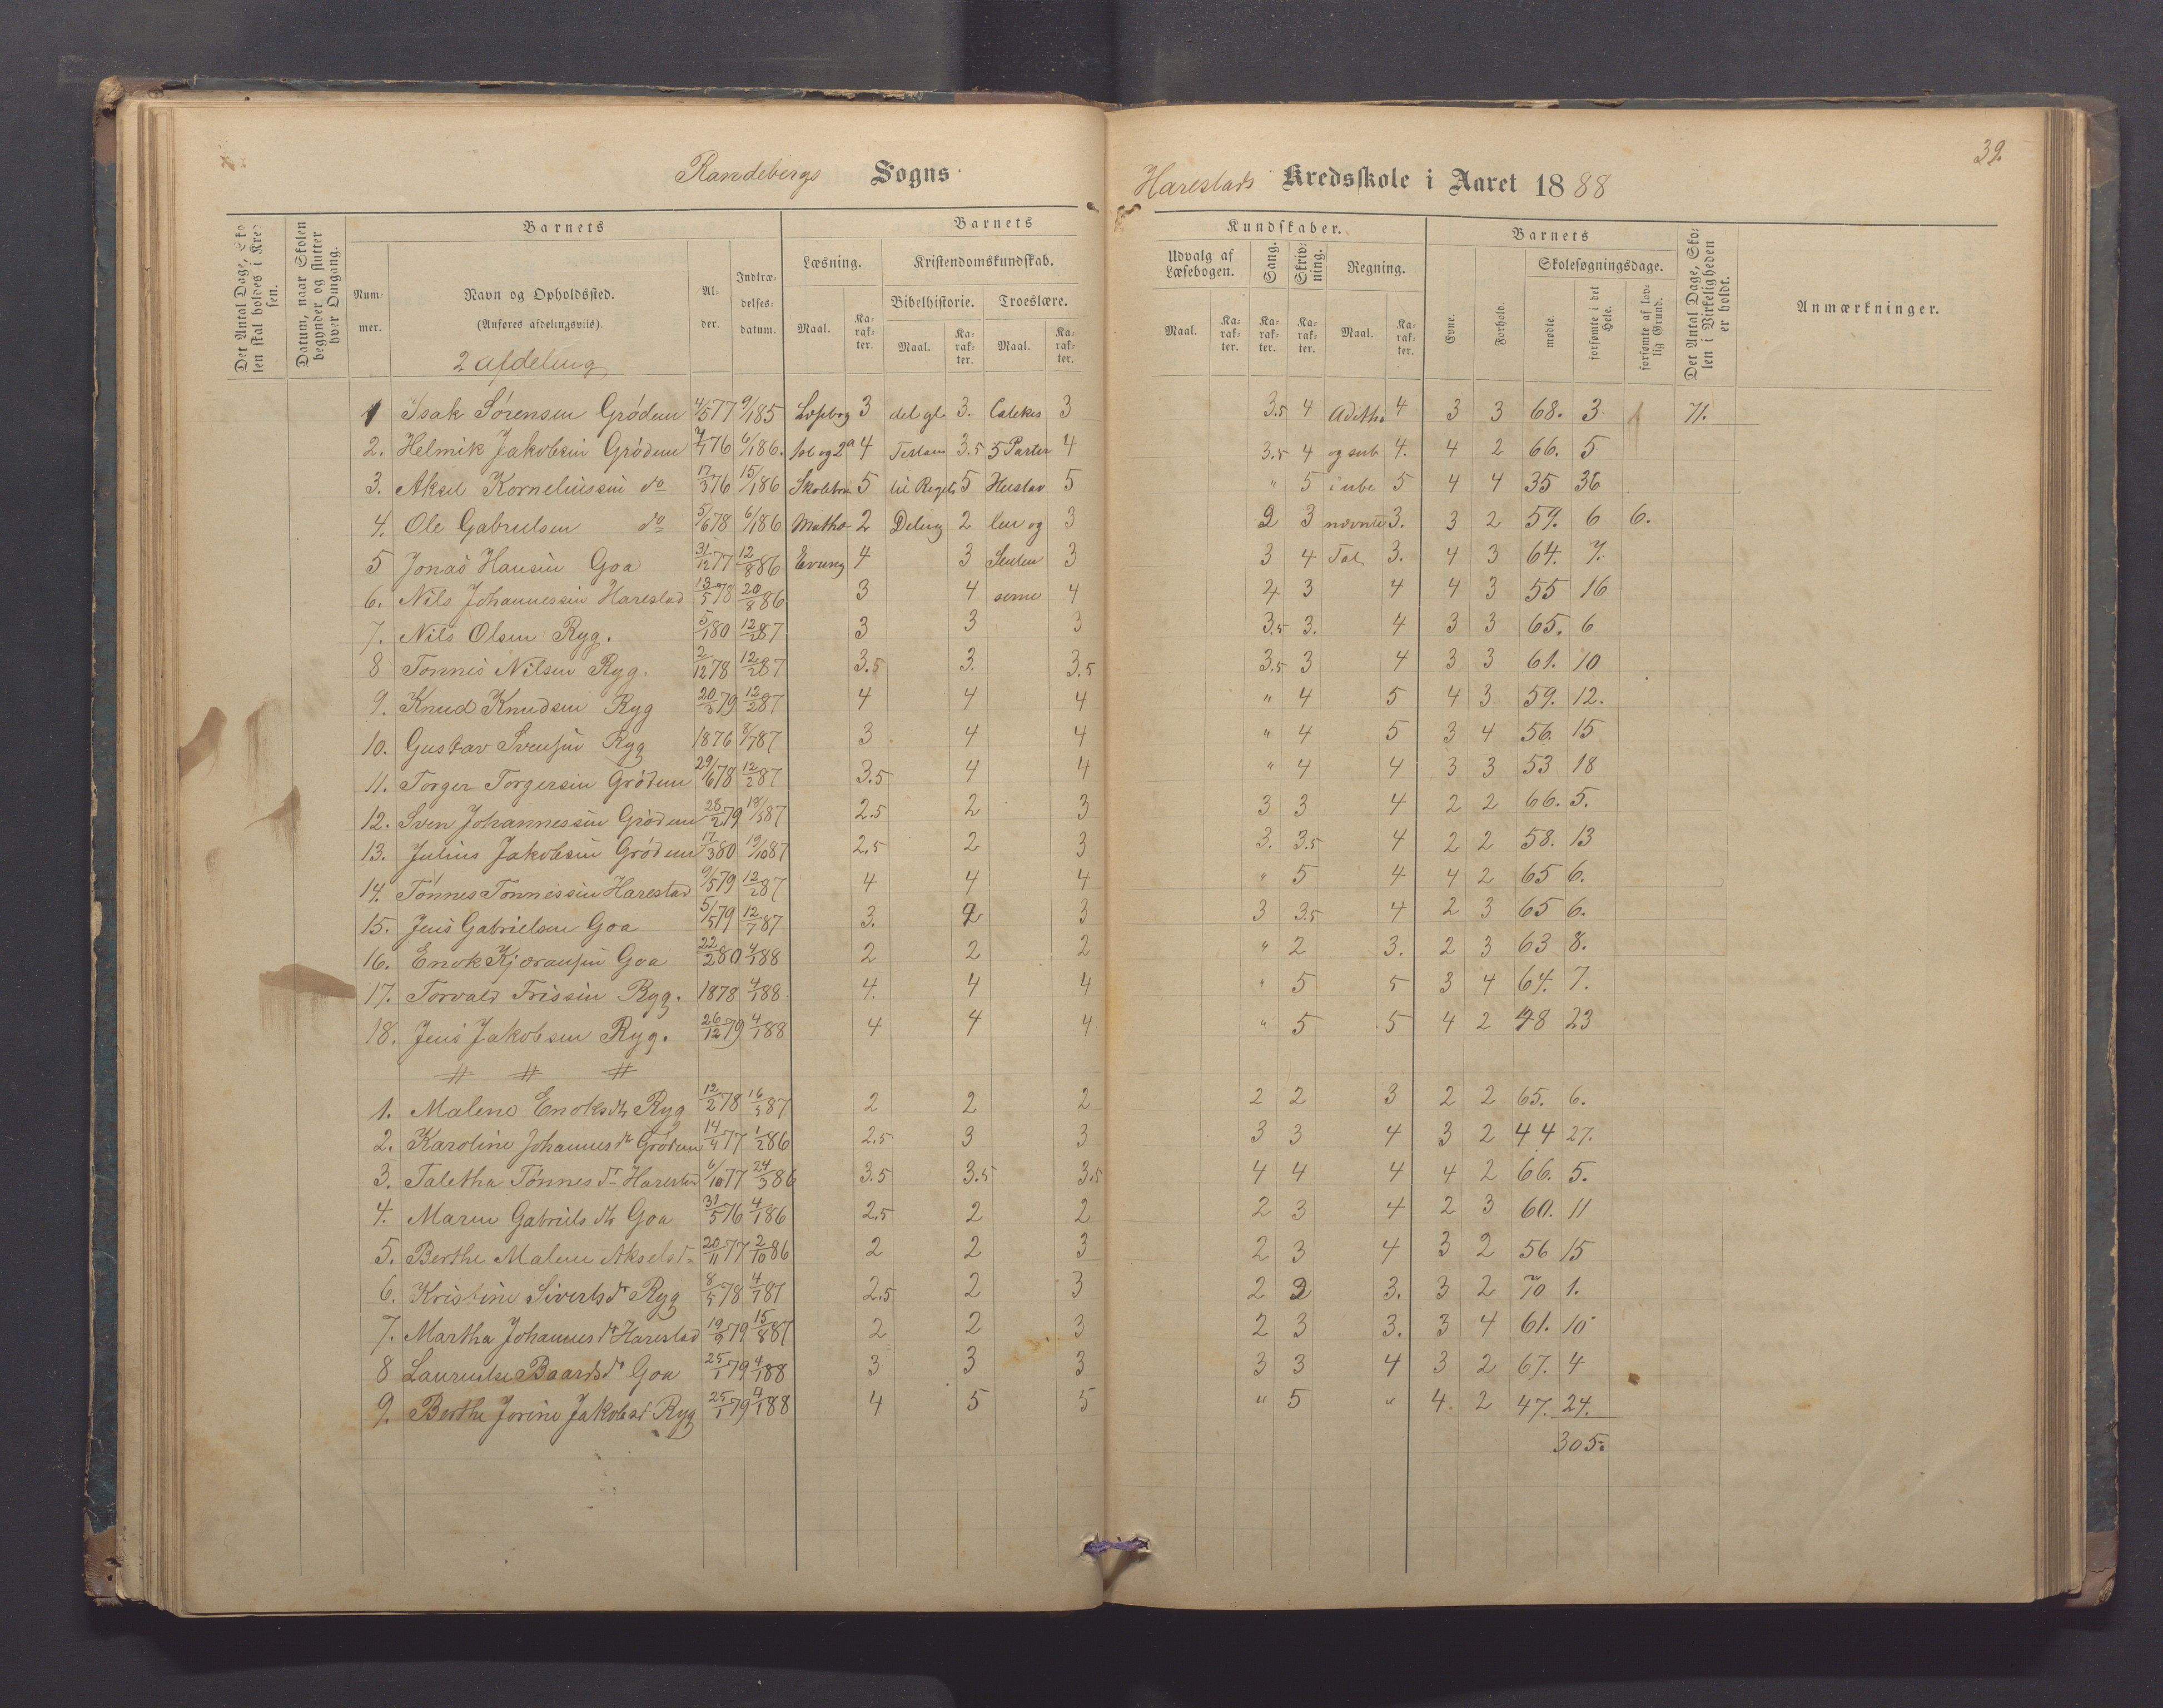 32.
Randebergs Sogns
Harestads Kredsskole i Aaret 1888
Det Antal Dage, Skolen skal holdes i Kredsen.
Datum, naar Skolen begynder og slutter hver Omgang.
Barnets
Nummer.
Navn og Opholdssted.
(Anføres afdelingsvis).
2 Afdeling
Alder.
Indtrædelsesdatum.
Barnets
Læsning.
Maal. Karakter.
Kristendomskundskab.
Bibelhistorie. Troeslære.
Maal. Karakter. Maal. Karakter.
Kundskaber.
Udvalg af Læsebogen.
Maal. Karakter.
Sang. Karakter.
Skrivning. Karakter.
Regning.
Maal. Karakter.
Barnets
Evne. Forhold.
Skolesøgningsdage.
mødte. forsømte i det Hele. forsømte af lovlig Grund.
Det Antal Dage, Skolen i Virkeligheden er holdt.
Anmærkninger.
1 Isak Sørensen Grødem 4/5 77 9/1 85 Læsebog 3 del gl. 3. Catekis 3 3.5 4 Adith. 4 3 3 68. 3 71.
2. Helmik Jakobsen Grødem 7/1 76 6/1 86. 4 Testam 3.5 5 Parter 4 3.5 4 og sub 4. 4 2 66. 5
3. Aksel Korneliussen do 17/3 76 15/1 86 5 til Regels 5 Hustav 5 " 5 i ube 5 4 4 35 36
4. Ole Gabrielsen do 5/6 78 6/1 86 2 Deling 2 len og 3 2 3 nævnte 3. 3 2 59. 6 6.
5 Jonas Hansen Goa 31/12 77 12/8 86 4 3 3 3 4 Tal 3. 4 3 64. 7.
6. Nils Johannessen Harestad 13/5 78 20/8 86 3 4 serne 4 4 3 4 4 3 55 16
7. Nils Olsen Ryg. 5/1 80 12/2 87 3 3 3 3.5 3. 4 3 3 65. 6
8 Tonnes Nilsen Ryg. 2/12 78 12/2 87 3.5 3. 3.5 3.5 3 4 3 3 61. 10
9. Knud Knudsen Ryg 20/3 79 12/2 87 4 4 4 " 4 5 4 3 59. 12.
10. Gustav Svensen Ryg 1876 8/7 87 3 4 4 " 4 5 3 4 56. 15
11. Torger Torgersen Grødem 29/6 78 12/2 87 3.5 4 4 " 4 4 3 3 53 18
12. Sven Johannessen Grødem 28/2 79 18/5 87 2.5 2 3 3 3 4 2 2 66. 5.
13. Julius Jakobsen Grødem 17/3 80 19/10 87 2.5 2 3 3. 3.5 4 2 2 58. 13
14. Tønnes Tonnessen Harestad 9/5 79 12/2 87 4 4 4 " 5 4 4 2 65 6.
15. Jens Gabrielsen Goa 5/5 79 12/7 87 3. 2 3 3 3.5 4 2 3 65 6.
16. Enok Kjoransen Goa 22/2 80 4/1 88 2 2 2 " 2 3. 2 3 63 8.
17. Torvald Frissen Ryg. 1878 4/1 88. 4. 4 4 " 5 5 3 4 64. 7.
18. Jens Jakobsen Ryg. 26/12 79 4/1 88 4 4 4 " 5 5 4 2 48 23
1. Malene Enoksdtr Ryg 12/2 78 16/5 87 2 2 2 2 2 3 2 2 65. 6.
2. Karoline Johannesdtr Grødem 14/4 77 1/2 86 2.5 3 3 3 3 4 3 2 44 27.
3. Taletha Tönnesdtr Harestad 6/10 77 24/3 86 3.5 3.5 3.5 4 4 4 4 2 66. 5.
4. Maren Gabrielsdtr Goa 31/5 76 4/1 86 2.5 2 2 2 3 4 2 3 60. 11
5. Berthe Malene Akselsdtr 20/11 77 2/10 86 2 2 3 2 3 4 3 2 56 15
6. Kristine Sivertsdtr Ryg 8/5 78 4/7 87 2.5 2 3 2 2 3. 3 2 70 1.
7. Martha Johannesdtr Harestad 19/9 79 15/8 87 2 2 3 2 3 3. 3 4 61. 10
8 Baardsdtr Goa 25/1 79 4/1 88 3 3 3 3 3 4 3 2 67. 4
9. Berthe Jorine Jakobsd Ryg 25/1 79 4/1 88 4 5 5 " 5 " 4. 2 47. 24.
305.